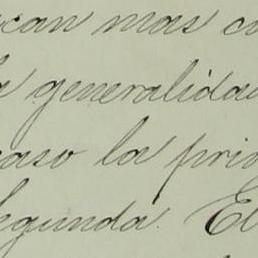 can mas co
a generalidad
caso la prim
segunda. El